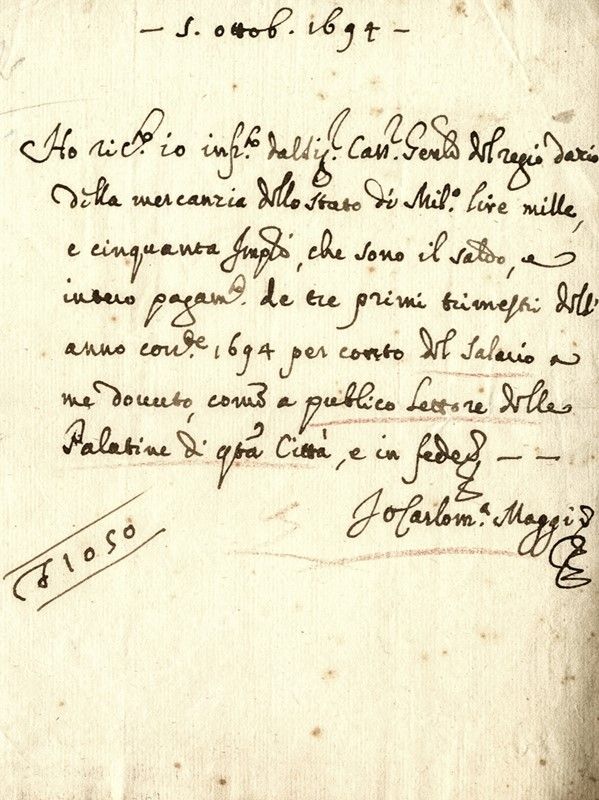 — 5. ottob. 1694 —
Ho ric.to io infr.to dal Sig.r Cass.r Genle del regio dazio
della mercanzia dello Stato di Mil.o lire mille,
e cinquanta Impli, che sono il saldo, e
intero pagam.to de tre primi trimestri dell'
anno corr.te 1694 per conto del Salario a
me dovuto, come a publico Lettore delle
Palatine di qta Città, e in fede — —
Io Carlo M.a Maggi
£ 1050